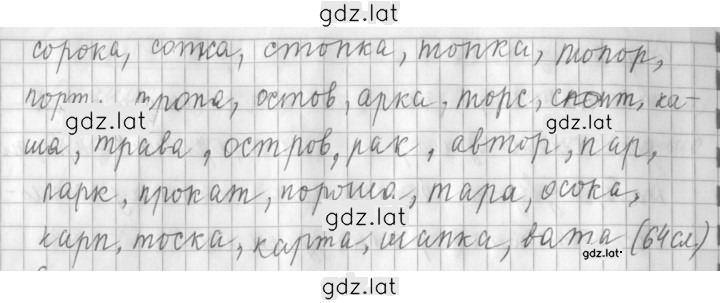 gdz.lat
сорока, сотка, стопка, топка, топор,
порт, тропа, остов, арка, торс, спорт, ка-
gdz.lat
gdz.lat
ша, трава, остров, рак, автор, пар,
парк, прокат, пороша, тара, осока,
gdz.lat
карп, тоска, карта, шапка, вата (64сл.)
gdz.lat
gdz.lat